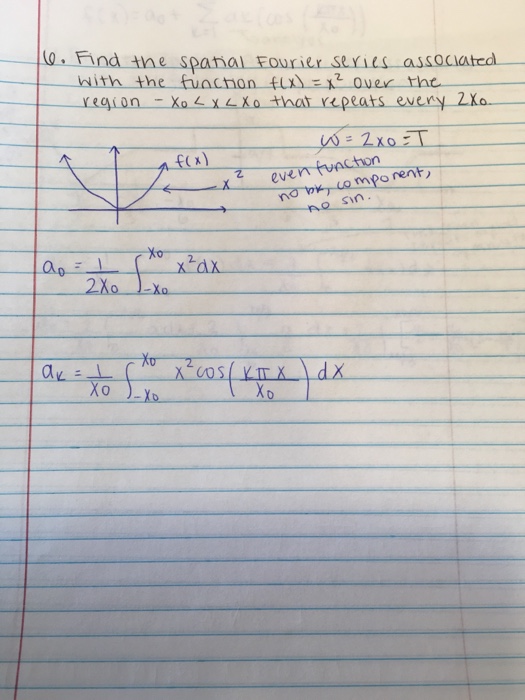 6. Find the spatial Fourier series associated
with the function f(x) = x² over the
region - x₀ < x < x₀ that repeats every 2x₀.
ω = 2x₀ = T
f(x)
x²
even function
no bk, component,
no sin.
a₀ = 1/2x₀ ∫_-x₀^x₀ x² dx
aₖ = 1/x₀ ∫_-x₀^x₀ x² cos(kπx/x₀) dx